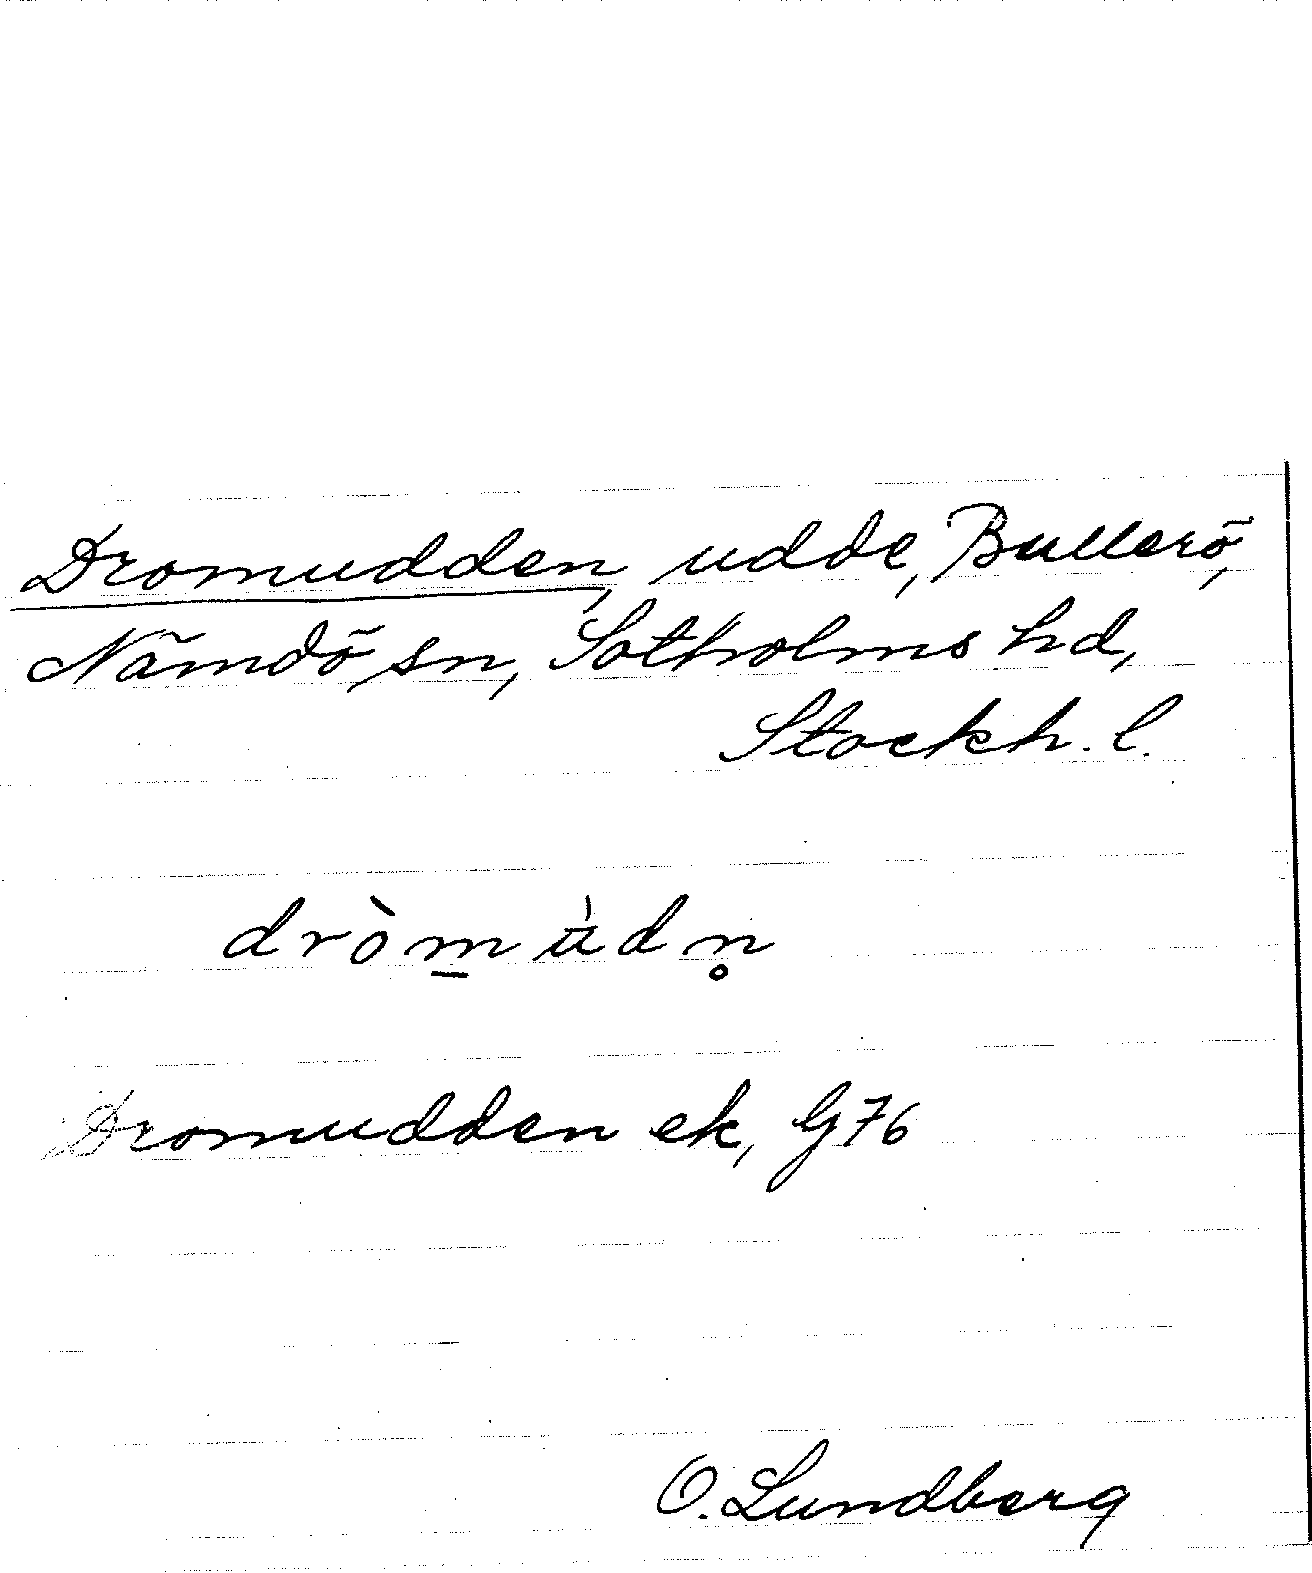 Dromudden, udde, Bullerö,
Nämdö sn, Sotholms hd,
Stockh. l.
dròm̱u̇̀dn̥
Dromudden ek, G76
O. Lundberg